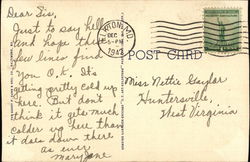 Dear Sis,
Just to say hello
and hope these
few lines find
You O.K. It's
getting pretty cold up
here. But don't
think it gets much
colder up here than
it does down there
as ever
Mary Jane
DEC
5-PM
1942
POST CARD
Miss Nettie Gaylor
Huntersville,
West Virginia